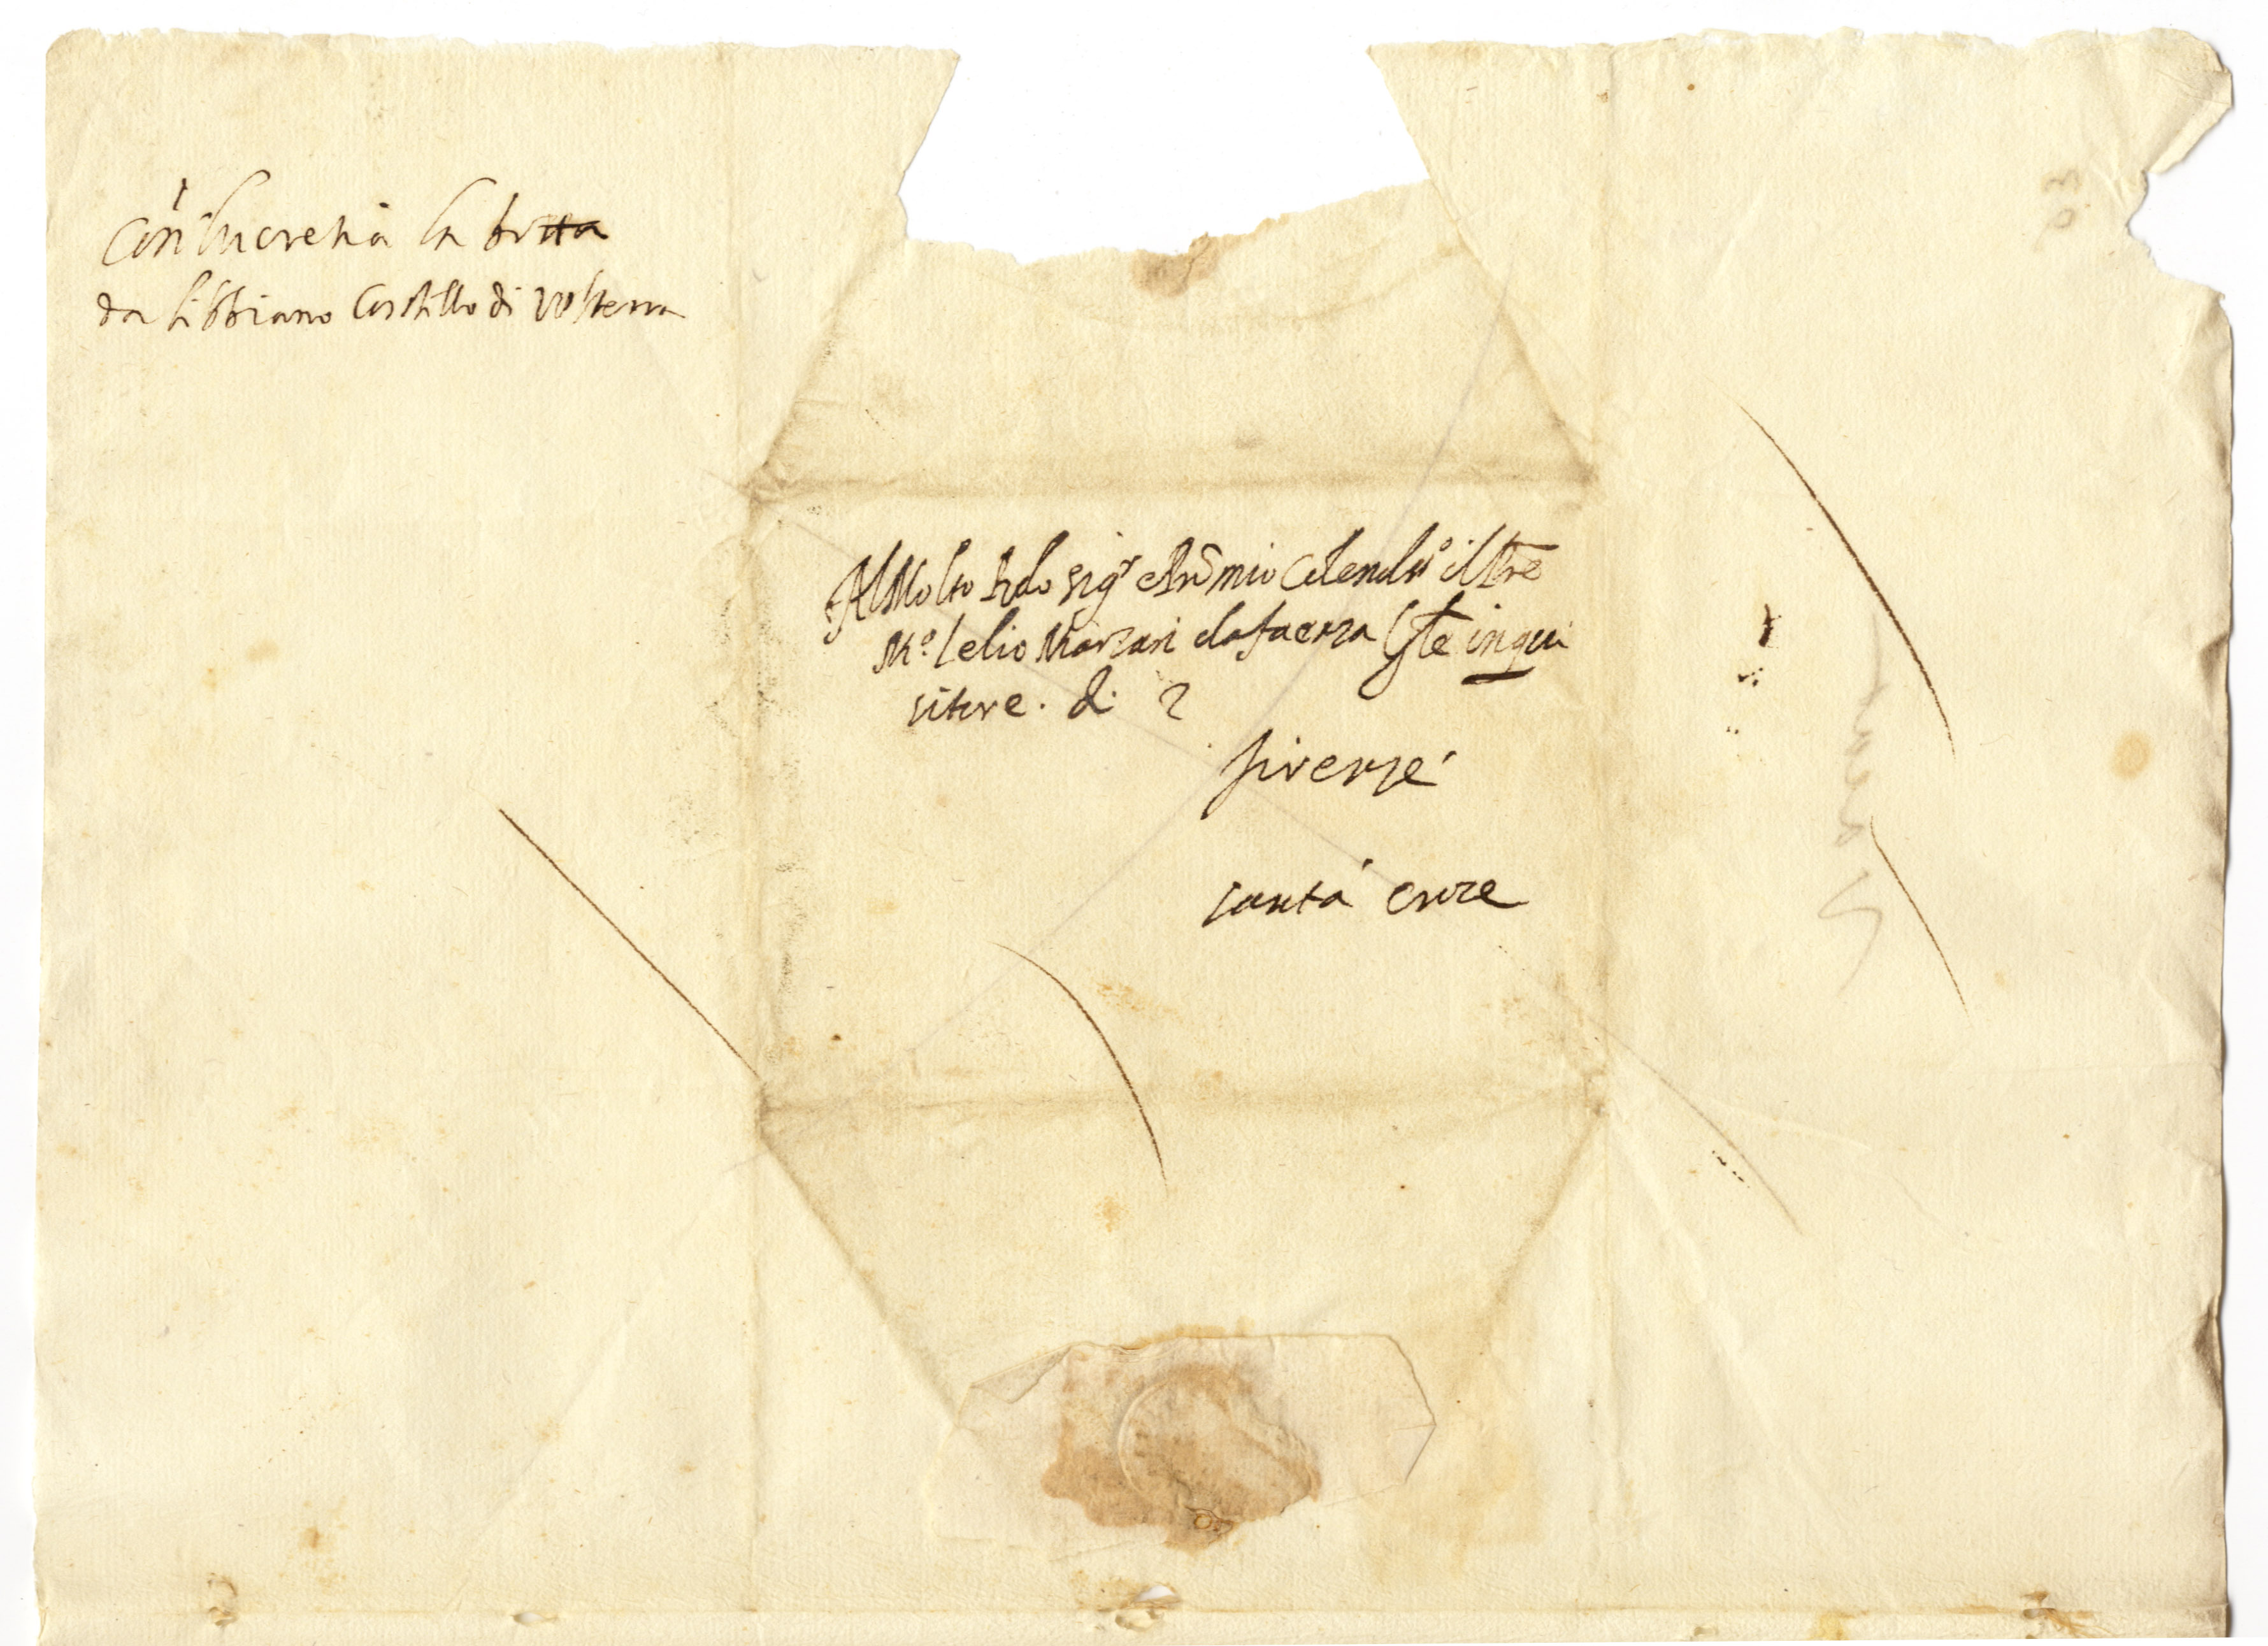 Con lucretia la britta
da libbiano Castello di Volterra
Al Molto Rdo sigr et Pron mio Colendmo il Pre
Mo. lelio Marzari da faenza Gle inqui
sitore. di
firenze
santa croce